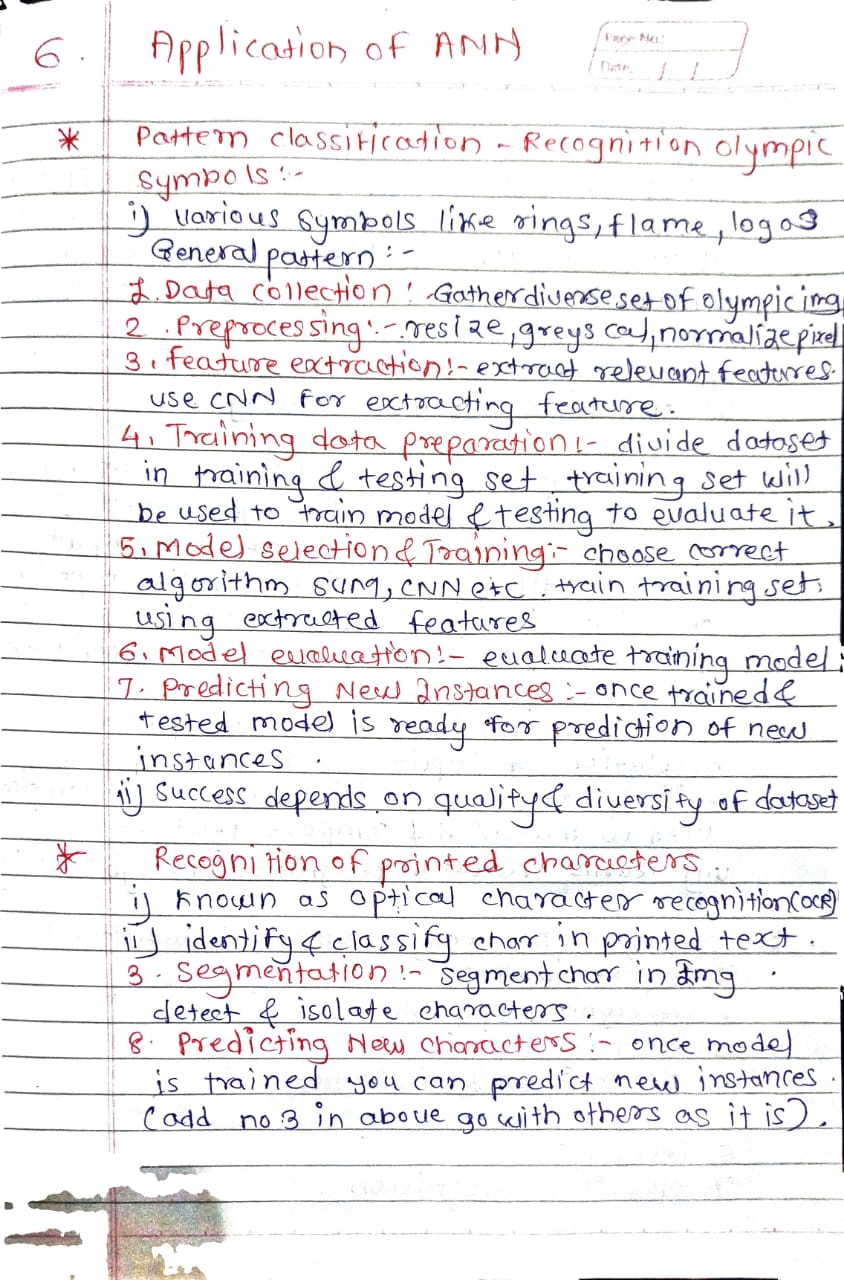 6. Application of ANN
Page No:
Date: / /
* Pattern classification - Recognition olympic
symbols :-
i) various symbols like rings, flame, logos
General pattern :-
1. Data collection :- Gather diverse set of olympic img
2. Preprocessing :- resize, greyscal, normalize pixel
3. feature extraction :- extract relevant features.
use CNN for extracting feature.
4. Training data preparation :- divide dataset
in training & testing set. training set will
be used to train model & testing to evaluate it.
5. Model selection & Training :- choose correct
algorithm svm, CNN etc. train training set.
using extracted features
6. Model evaluation :- evaluate training model.
7. Predicting New Instances :- once trained &
tested model is ready for prediction of new
instances.
ii) Success depends on quality & diversity of dataset
* Recognition of printed characters
i) Known as optical character recognition (OCR)
ii) identify & classify char in printed text.
3. Segmentation :- segment char in Img.
detect & isolate characters.
8. Predicting New characters :- once model
is trained you can predict new instances.
(add no 3 in above go with others as it is).